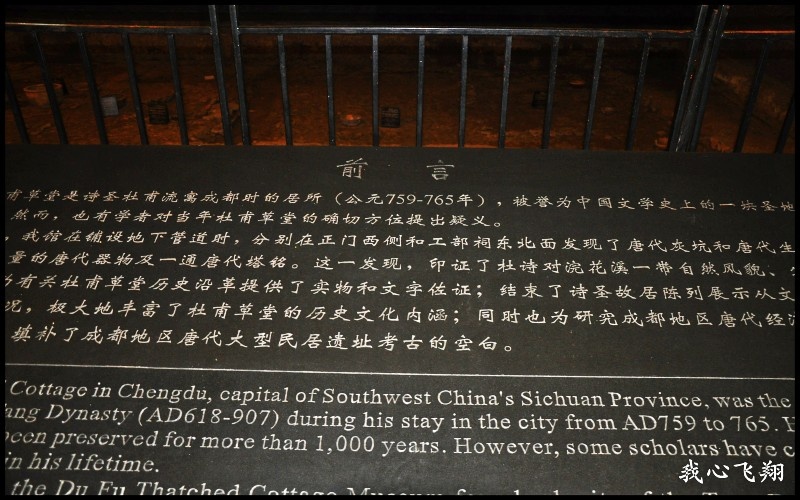 前 言
甫草堂是诗圣杜甫流寓成都时的居所（公元759-765年），被誉为中国文学史上的一块圣地
然而，也有学者对当年杜甫草堂的确切方位提出疑义。
，我馆在铺设地下管道时，分别在正门西侧和工部祠东北面发现了唐代灰坑和唐代生
量的唐代器物及一通唐代塔铭。这一发现，印证了杜诗对浣花溪一带自然风貌、
有关杜甫草堂历史沿革提供了实物和文字佐证；结束了诗圣故居陈列展示从文
况，极大地丰富了杜甫草堂的历史文化内涵；同时也为研究成都地区唐代经济
填补了成都地区唐代大型民居遗址考古的空白。
Cottage in Chengdu, capital of Southwest China's Sichuan Province, was the
ang Dynasty (AD618-907) during his stay in the city from AD759 to 765.
been preserved for more than 1,000 years. However, some scholars have c
in his lifetime.
the Du Fu Thatched Cottage Museum
我心飞翔